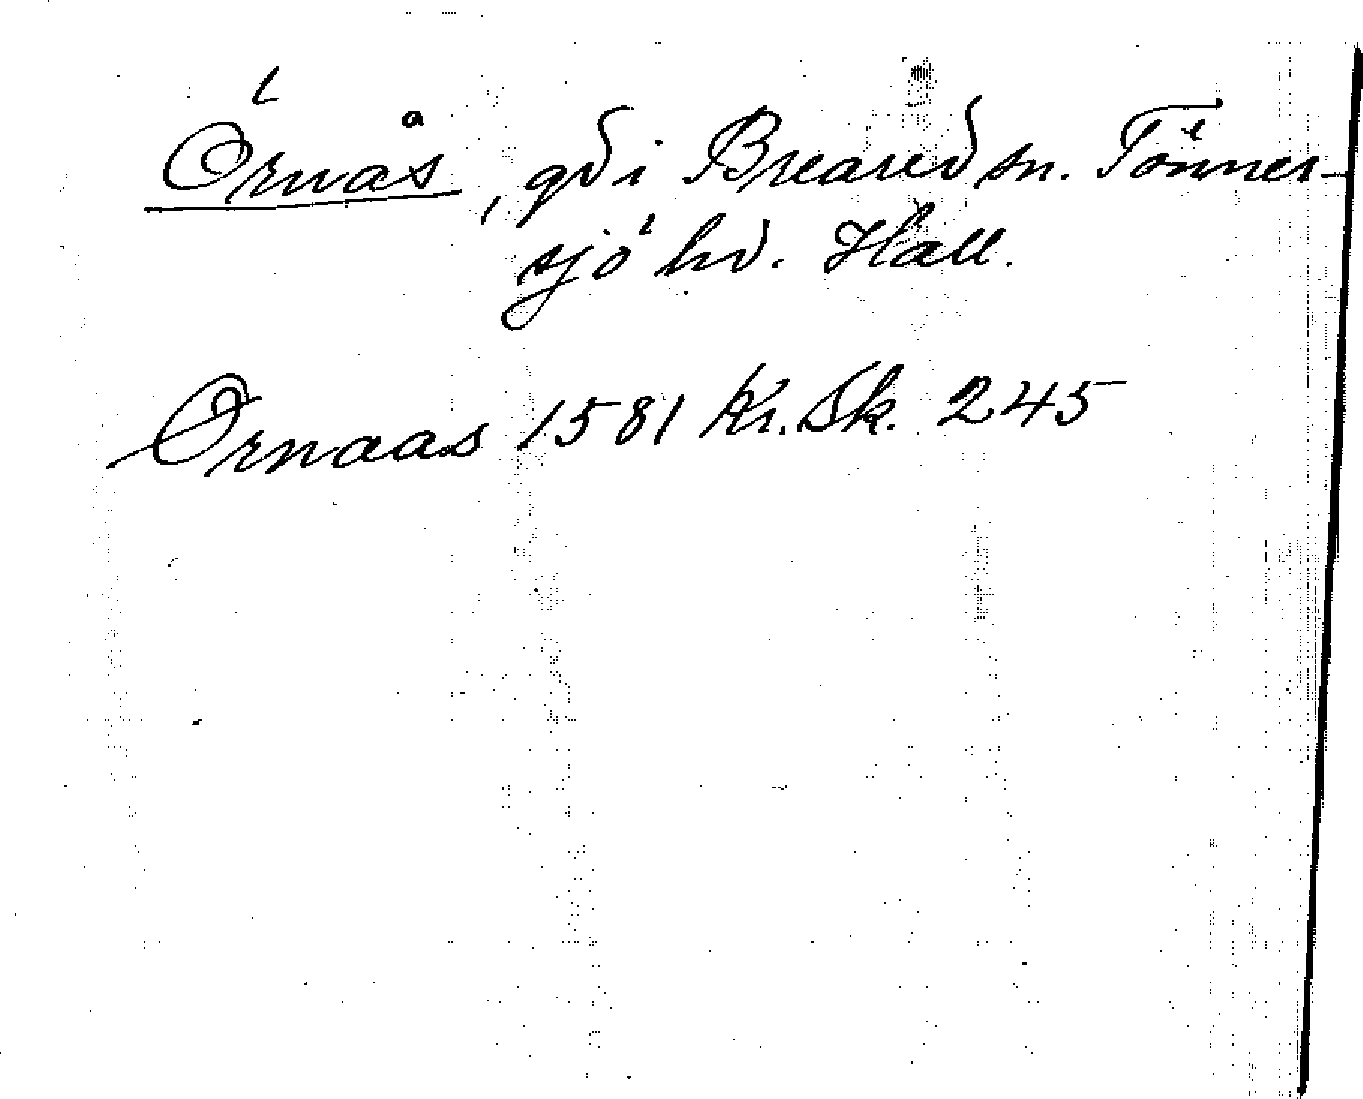 Örnås, gd i Breared sn. Tönner-
sjö hd. Hall.
Ørnaas 1581 Kr.Sk. 245